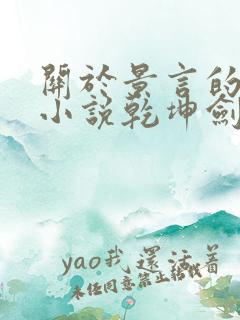 關於景言的
小說乾坤劍
yao我還活着
未经同意禁止转载